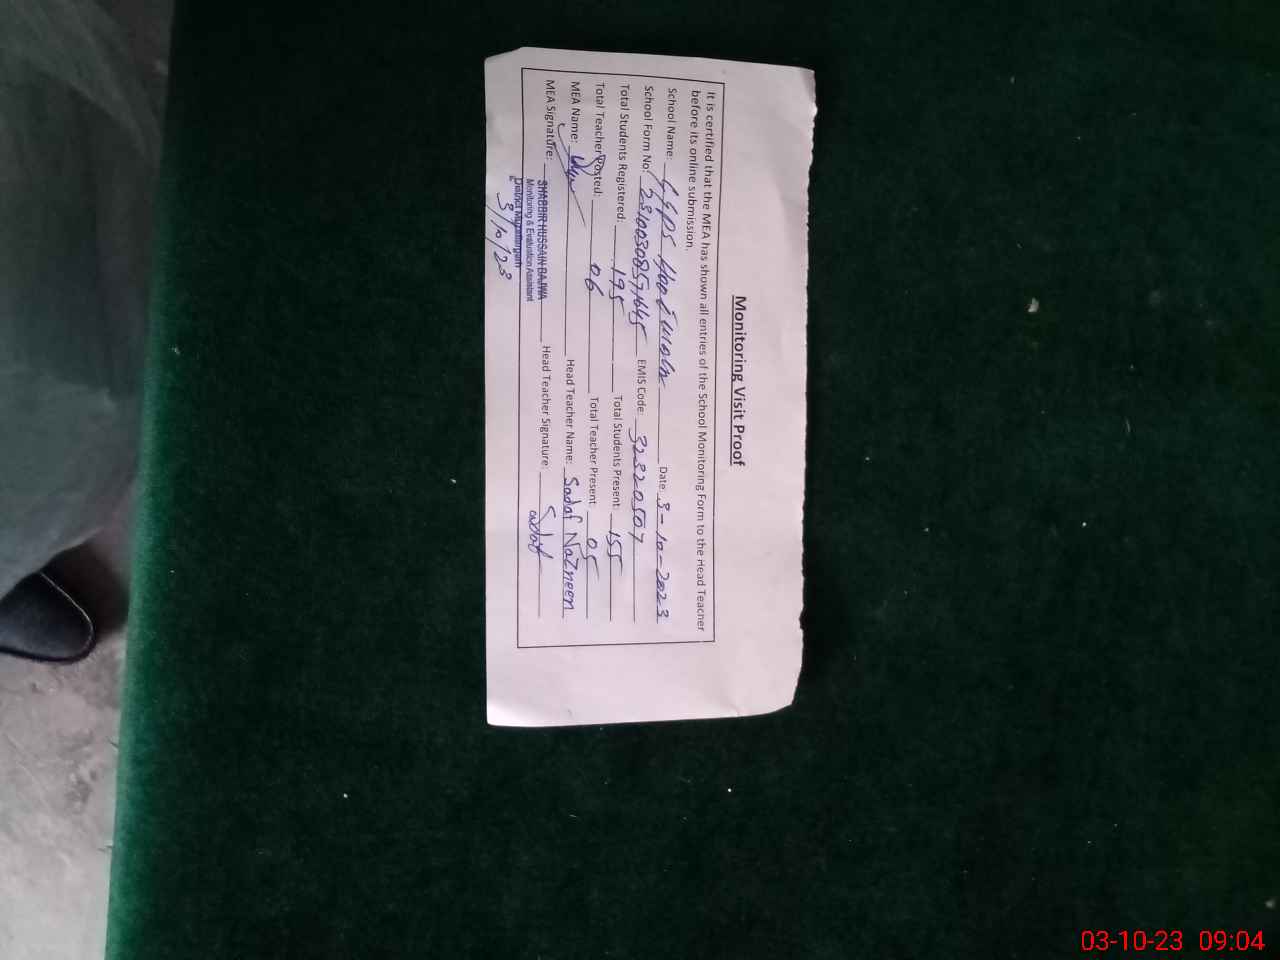 Monitoring Visit Proof
It is certified that the MEA has shown all entries of the School Monitoring Form to the Head Teacher
before its online submission.
School Name: GGPS Date: 3-10-2023
School Form No: EMIS Code: 32320507
Total Students Registered: 195 Total Students Present: 155
Total Teacher Posted: 06 Total Teacher Present: 05
MEA Name: Head Teacher Name: Sadaf Nazneen
MEA Signature: SHABBIR HUSSAIN BAJWA Head Teacher Signature: Sadaf
Monitoring & Evaluation Assistant
District Muzaffargarh
3/10/23
03-10-23 09:04